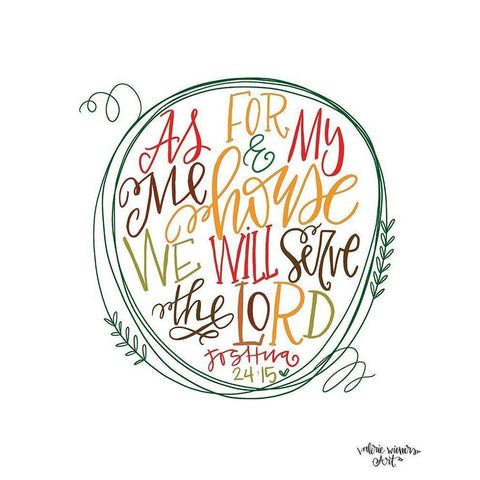 As FOR & My
Me house
WE WILL serve
the LORD
Joshua
24:15
valerie wieners
Art